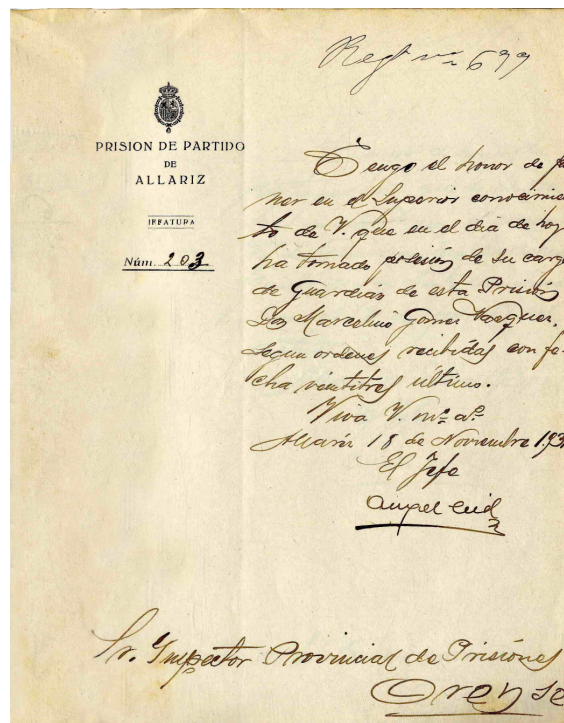 Regt nº 699
PRISION DE PARTIDO
DE
ALLARIZ
JEFATURA
Núm. 203
Tengo el honor de po
ner en el Superior conocimien
to de V. que en el dia de hoy
ha tomado posesión de su cargo
de Guardián de esta Prisión
Don Marcelino Gómez Vazquez,
segun ordenes recibidas con fe-
cha veintitres último.
Viva V. ms. as.
Allariz 18 de Noviembre 193
El Jefe
Angel Cid
Sr. Inspector Provincial de Prisiones
Orense